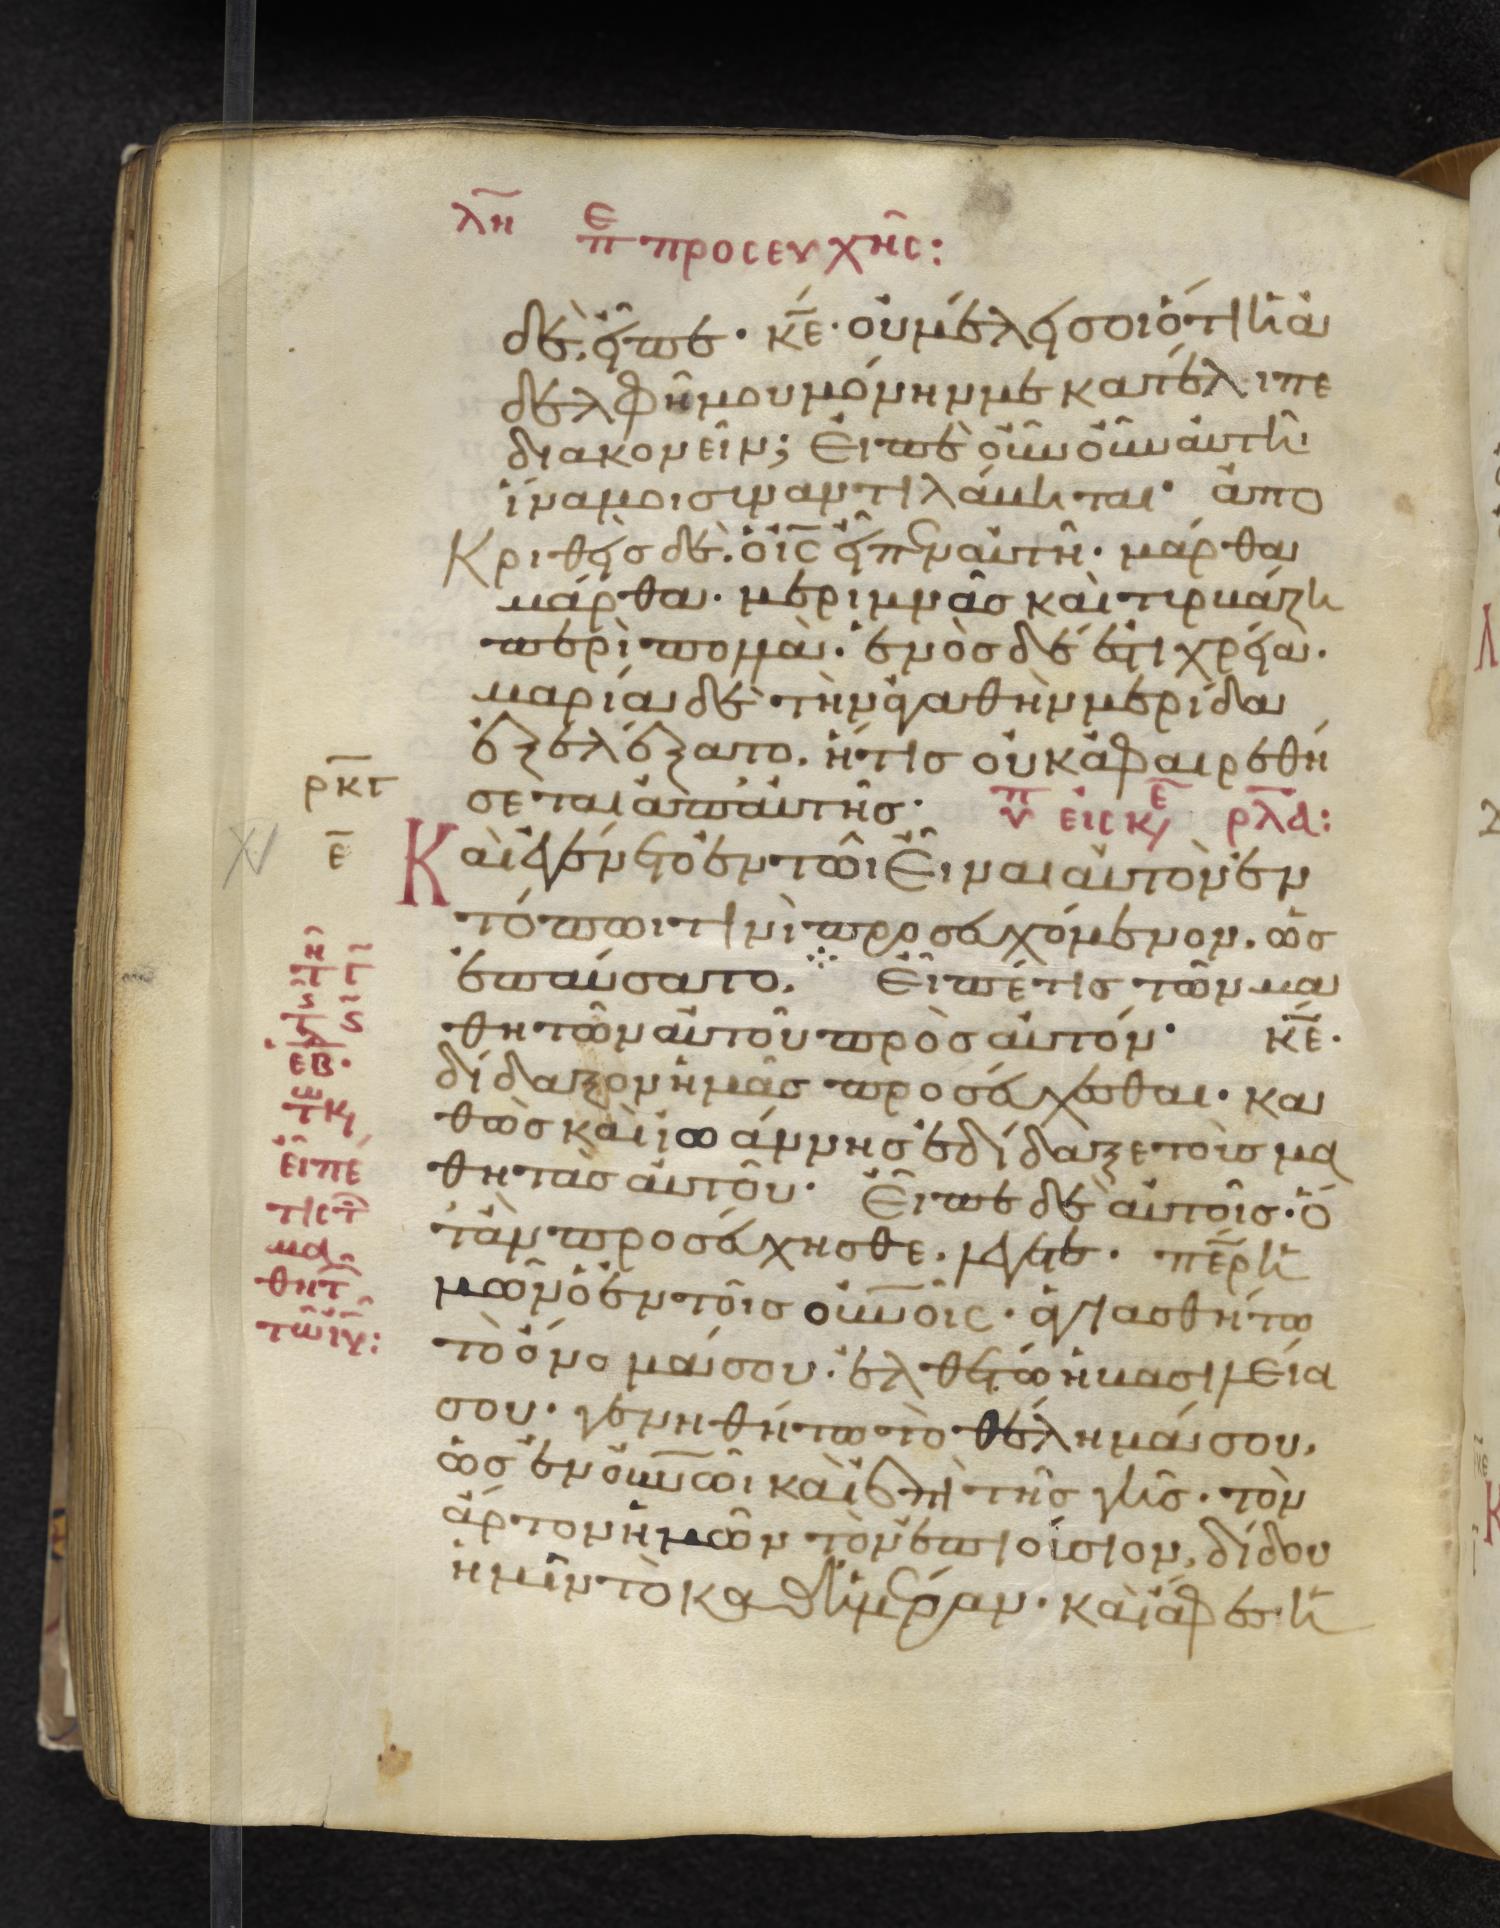 λη πε προσευχῆς:
δὲ εἶπε· κε· οὐ μέλει σοι ὅτι ἡ ἀ
δελφή μου μόνην με κατέλιπε
διακονεῖν; εἰπὲ οὖν αὐτῆ
ἵνα μοι συναντιλάβηται· ἀπο
κριθεὶς δὲ ὁ ις εἶπεν αὐτῆ· μάρθα
μάρθα· μεριμνᾶς καὶ τυρβάζη
περὶ πολλὰ· ἑνὸς δέ ἐστι χρεία·
μαρία δὲ τὴν ἀγαθὴν μερίδα
ἐξελέξατο. ἥτις οὐκ ἀφαιρεθή
ρκγ
σεται ἀπ' αὐτῆς·
ε
Καὶ ἐγένετο ἐν τῶι εἶναι αὐτὸν ἐν
τόπωι τινὶ προσευχόμενον. ὡς
ἐπαύσατο. εἶπέ τις τῶν μα
θητῶν αὐτοῦ πρὸς αὐτόν· κε·
δίδαξον ἡμᾶς προσεύχεσθαι· κα
θὼς καὶ ἰωάννης ἐδίδαξε τοὺς μα
θητὰς αὐτοῦ· εἶπε δὲ αὐτοῖς· ὅ
εἶπέ
τις τ
μα
θητ
τῶν ιυ:
ταν προσεύχησθε. λέγετε· περ ἡ
μῶν ὁ ἐν τοῖς οὐνοῖς· ἁγιασθήτω
τὸ ὄνομά σου· ἐλθέτω ἡ βασιλεία
σου· γενηθήτω τὸ θέλημά σου,
ὡς ἐν οὐνῶι καὶ ἐπὶ τῆς γῆς· τὸν
ἄρτον ἡμῶν τὸν ἐπιούσιον, δίδου
ἡμῖν τὸ καθ' ἡμέραν· καὶ ἄφες ἡ